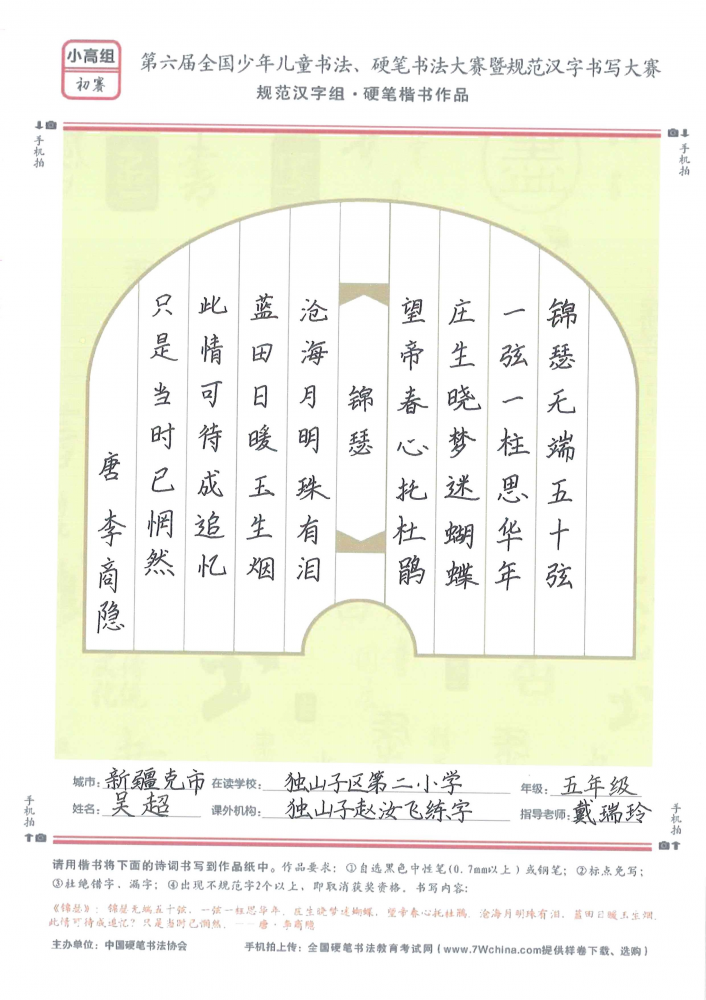 小高组
初赛
第六届全国少年儿童书法、硬笔书法大赛暨规范汉字书写大赛
规范汉字组·硬笔楷书作品
手机拍
手机拍
锦瑟无端五十弦
一弦一柱思华年
庄生晓梦迷蝴蝶
望帝春心托杜鹃
锦瑟
沧海月明珠有泪
蓝田日暖玉生烟
此情可待成追忆
只是当时已惘然
唐 李商隐
城市：新疆克市 在读学校：独山子区第二小学 年级：五年级
姓名：吴超 课外机构：独山子赵汝飞练字 指导老师：戴瑞玲
手机拍
手机拍
请用楷书将下面的诗词书写到作品纸中。作品要求：①自选黑色中性笔(0.7mm以上)或钢笔；②标点免写；
③杜绝错字、漏字；④出现不规范字2个以上，即取消获奖资格。书写内容：
《锦瑟》：锦瑟无端五十弦，一弦一柱思华年。庄生晓梦迷蝴蝶，望帝春心托杜鹃。沧海月明珠有泪，蓝田日暖玉生烟。
此情可待成追忆？只是当时已惘然。——唐·李商隐
主办单位：中国硬笔书法协会 手机拍上传：全国硬笔书法教育考试网{www.7Wchina.com提供样卷下载、选购}